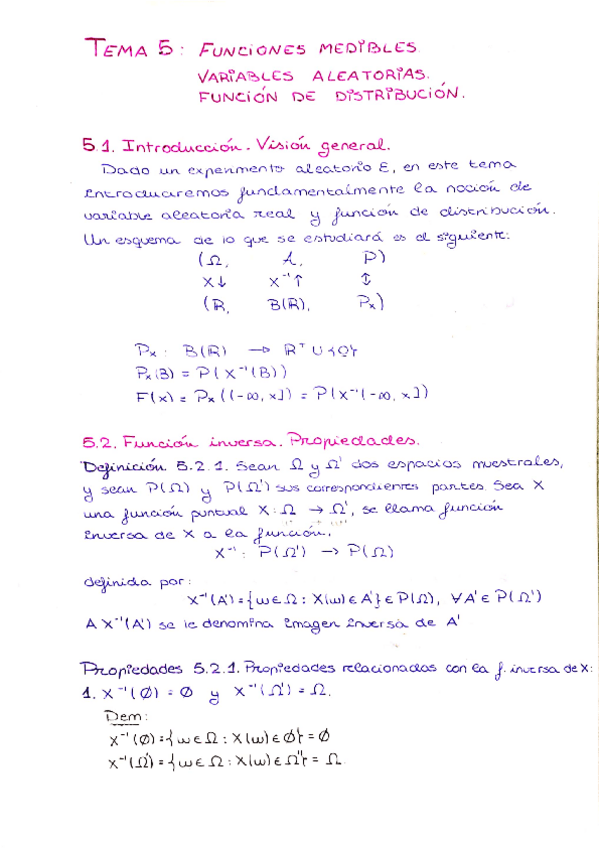 TEMA 5: FUNCIONES MEDIBLES.
VARIABLES ALEATORIAS.
FUNCIÓN DE DISTRIBUCIÓN.
5.1. Introducción. Visión general.
Dado un experimento aleatorio E, en este tema
introduciremos fundamentalmente la noción de
variable aleatoria real y función de distribución.
Un esquema de lo que se estudiará es el siguiente:
(Ω, A, P)
X↓ X⁻¹↑ ↕
(R, B(R), Pₓ)
Pₓ : B(R) → R⁺ ∪ {0}
Pₓ(B) = P(X⁻¹(B))
F(x) = Pₓ((-∞, x]) = P(X⁻¹(-∞, x])
5.2. Función inversa. Propiedades.
Definición 5.2.1. Sean Ω y Ω' dos espacios muestrales,
y sean P(Ω) y P(Ω') sus correspondientes partes. Sea X
una función puntual X: Ω → Ω', se llama función
inversa de X a la función.
X⁻¹ : P(Ω') → P(Ω)
definida por:
X⁻¹(A') = {ω ∈ Ω : X(ω) ∈ A'} ∈ P(Ω), ∀A' ∈ P(Ω')
A X⁻¹(A') se le denomina imagen inversa de A'
Propiedades 5.2.1. Propiedades relacionadas con la f. inversa de X:
1. X⁻¹(∅) = ∅ y X⁻¹(Ω') = Ω.
Dem:
X⁻¹(∅) = {ω ∈ Ω : X(ω) ∈ ∅} = ∅
X⁻¹(Ω') = {ω ∈ Ω : X(ω) ∈ Ω'} = Ω